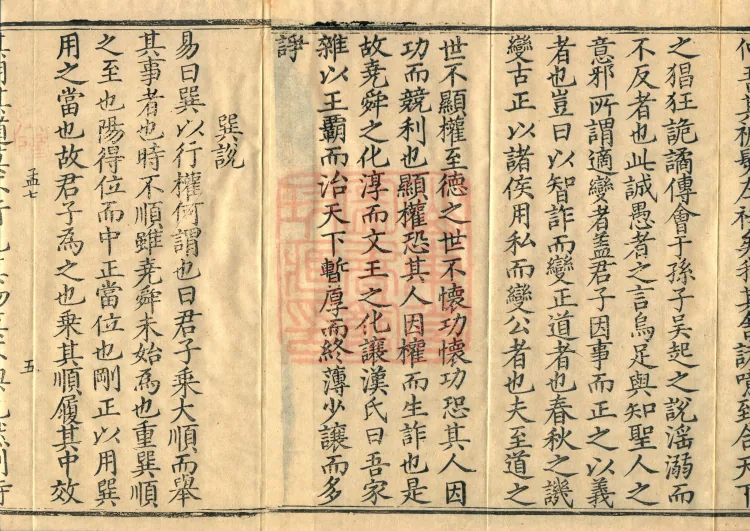 之猖狂詭譎傳會于孫子吳起之說滛溺而
不反者也此誠愚者之言烏足與知聖人之
意邪所謂適變者盖君子因事而正之以義
者也豈曰以智詐而變正道者也春秋之譏
變古正以諸侯用私而變公者也夫至道之
世不顯權至德之世不懷功懷功恐其人因
功而競利也顯權恐其人因權而生詐也是
故堯舜之化淳而文王之化讓漢氏曰吾家
雜以王霸而治天下暫厚而終薄少讓而多
諍
巽說
易曰巽以行權何謂也曰君子乘大順而舉
其事者也時不順雖堯舜未始為也重巽順
之至也陽得位而中正當位也剛正以用巽
用之當也故君子為之也乘其順履其中效
孟七
五